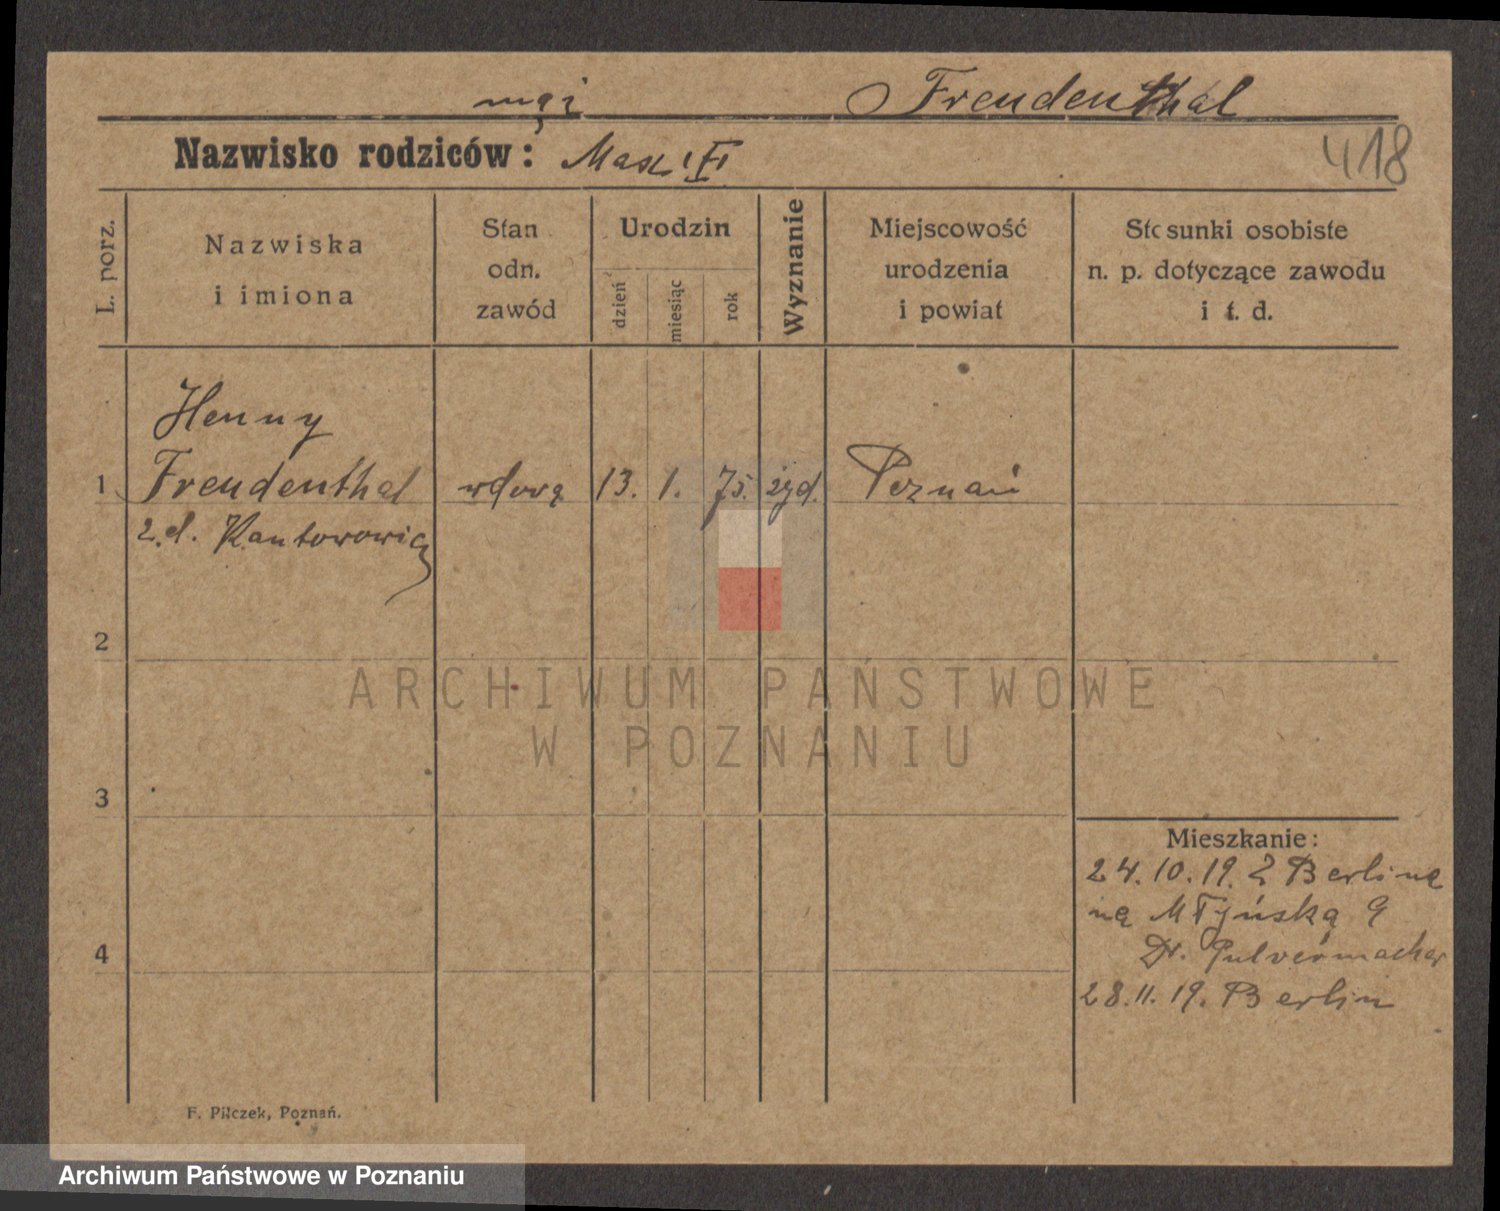 mąż Freudenthal
Nazwisko rodziców: Max
418
L. porz.
Nazwiska
i imiona
Stan
odn.
zawód
Urodzin
dzień
miesiąc
rok
Wyznanie
Miejscowość
urodzenia
i powiat
Stosunki osobiste
n. p. dotyczące zawodu
i t. d.
Henny
1 Freudenthal wdową 13. 1. 75. żyd. Poznań
z.d. Kantorowicz
2
ARCHIWUM PAŃSTWOWE
W POZNANIU
3
Mieszkanie:
24.10.19. z Berlina
na Młyńską 9
Dr. Pulvermacher
4
28.11.19. Berlin
F. Pilczek, Poznań.
Archiwum Państwowe w Poznaniu